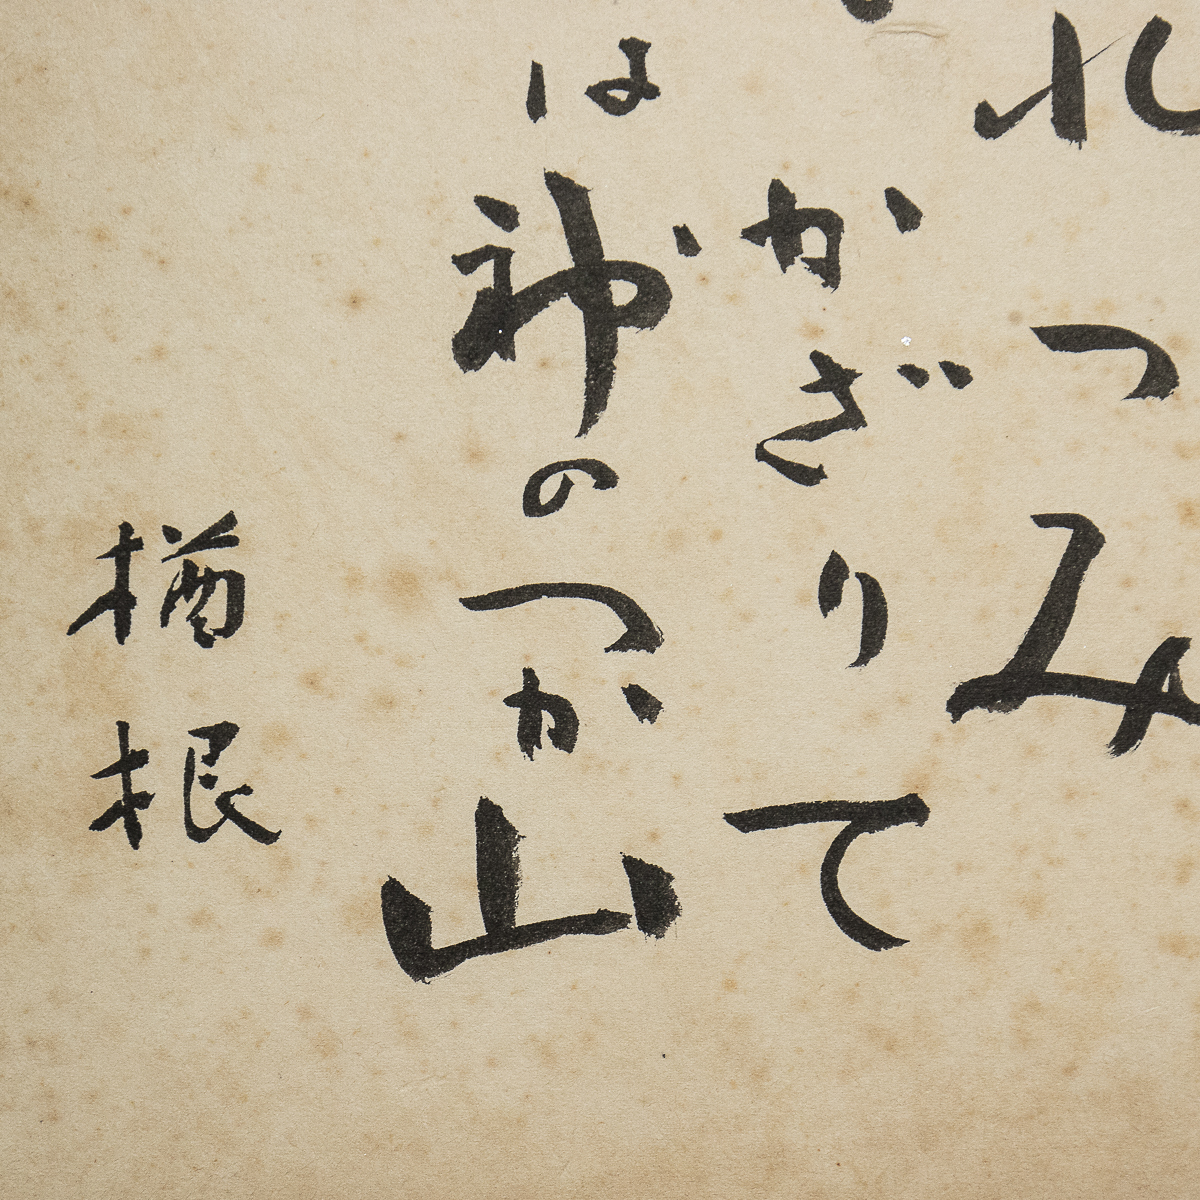 れつみ
かざりて
は神のつか山
楢根